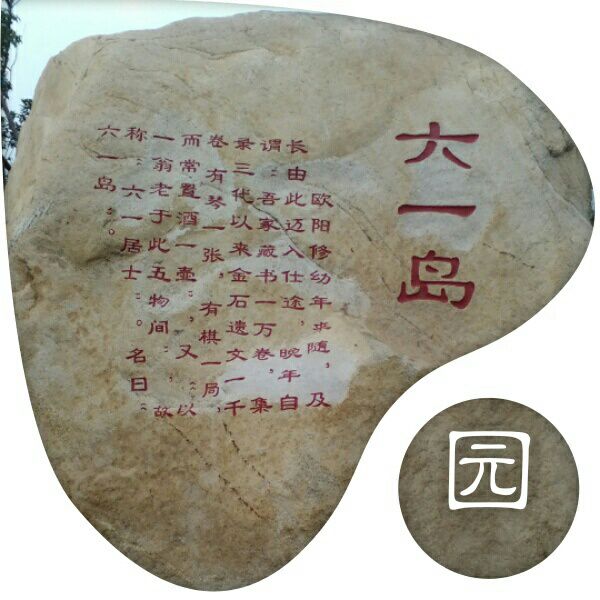 六一岛
欧阳修幼年来随,及
长由此迈入仕途,晚年自
谓:吾家藏书一万卷,集
录三代以来金石遗文一千
卷有琴一张,有棋一局,
而常置酒一壶”,又“以
一翁老于此五物间”,故
称“六一居士”。名曰“
六一岛”。
园